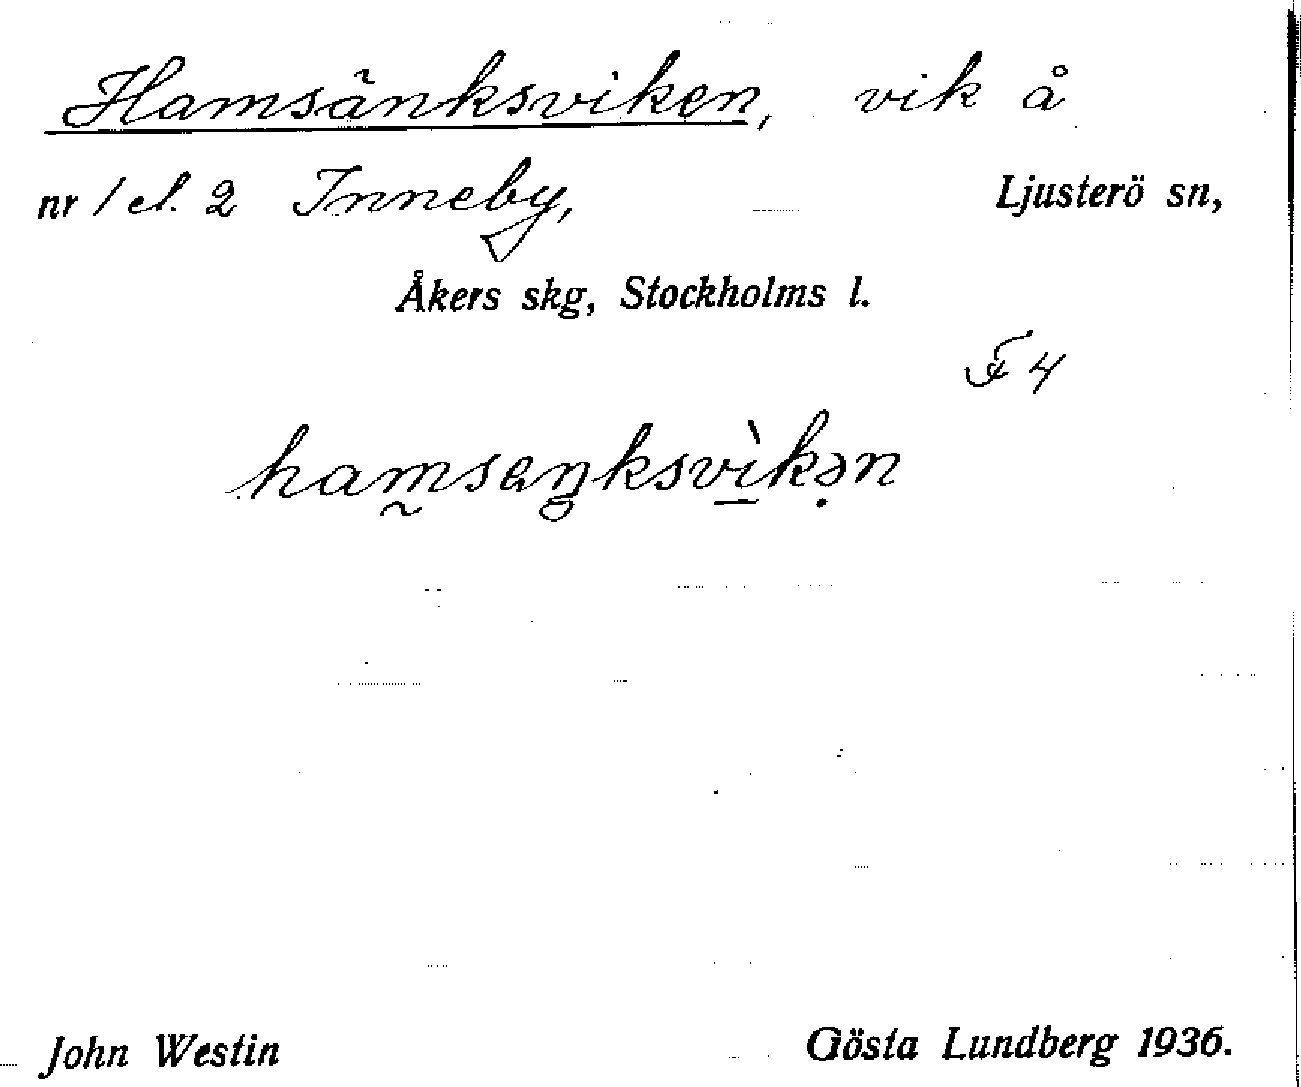 Hamsänksviken, vik å
nr 1 el. 2 Inneby, Ljusterö sn,
Åkers skg, Stockholms l.
F 4
ham̰saŋksvì̠kə̣n
John Westin Gösta Lundberg 1936.